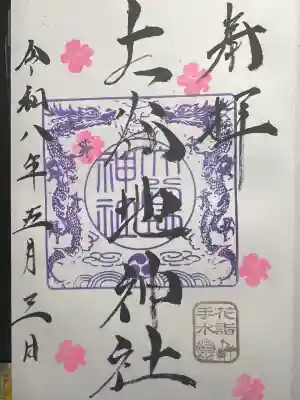 奉拝
大谷地神社
令和八年五月三日
大谷地神社
花詣
手水